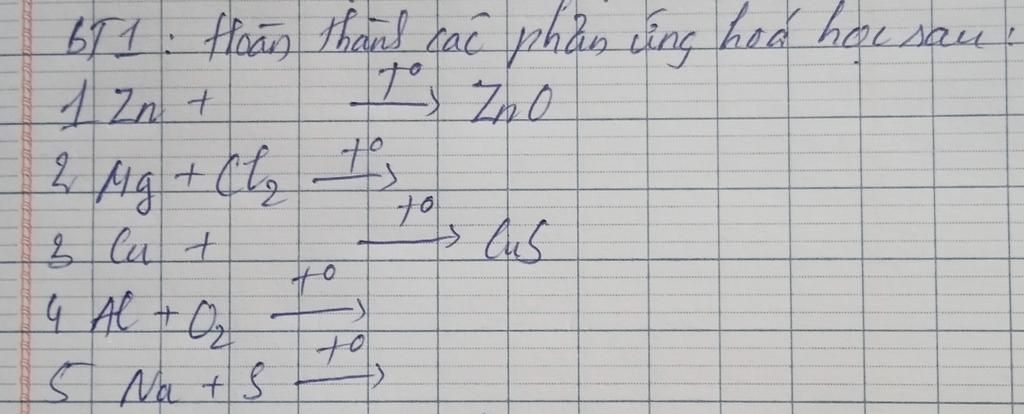 BT1: Hoàn thành các phản ứng hoá học sau:
1 Zn + t° → ZnO
2 Mg + Cl₂ t° →
3 Cu + t° → CuS
4 Al + O₂ t° →
5 Na + S t° →